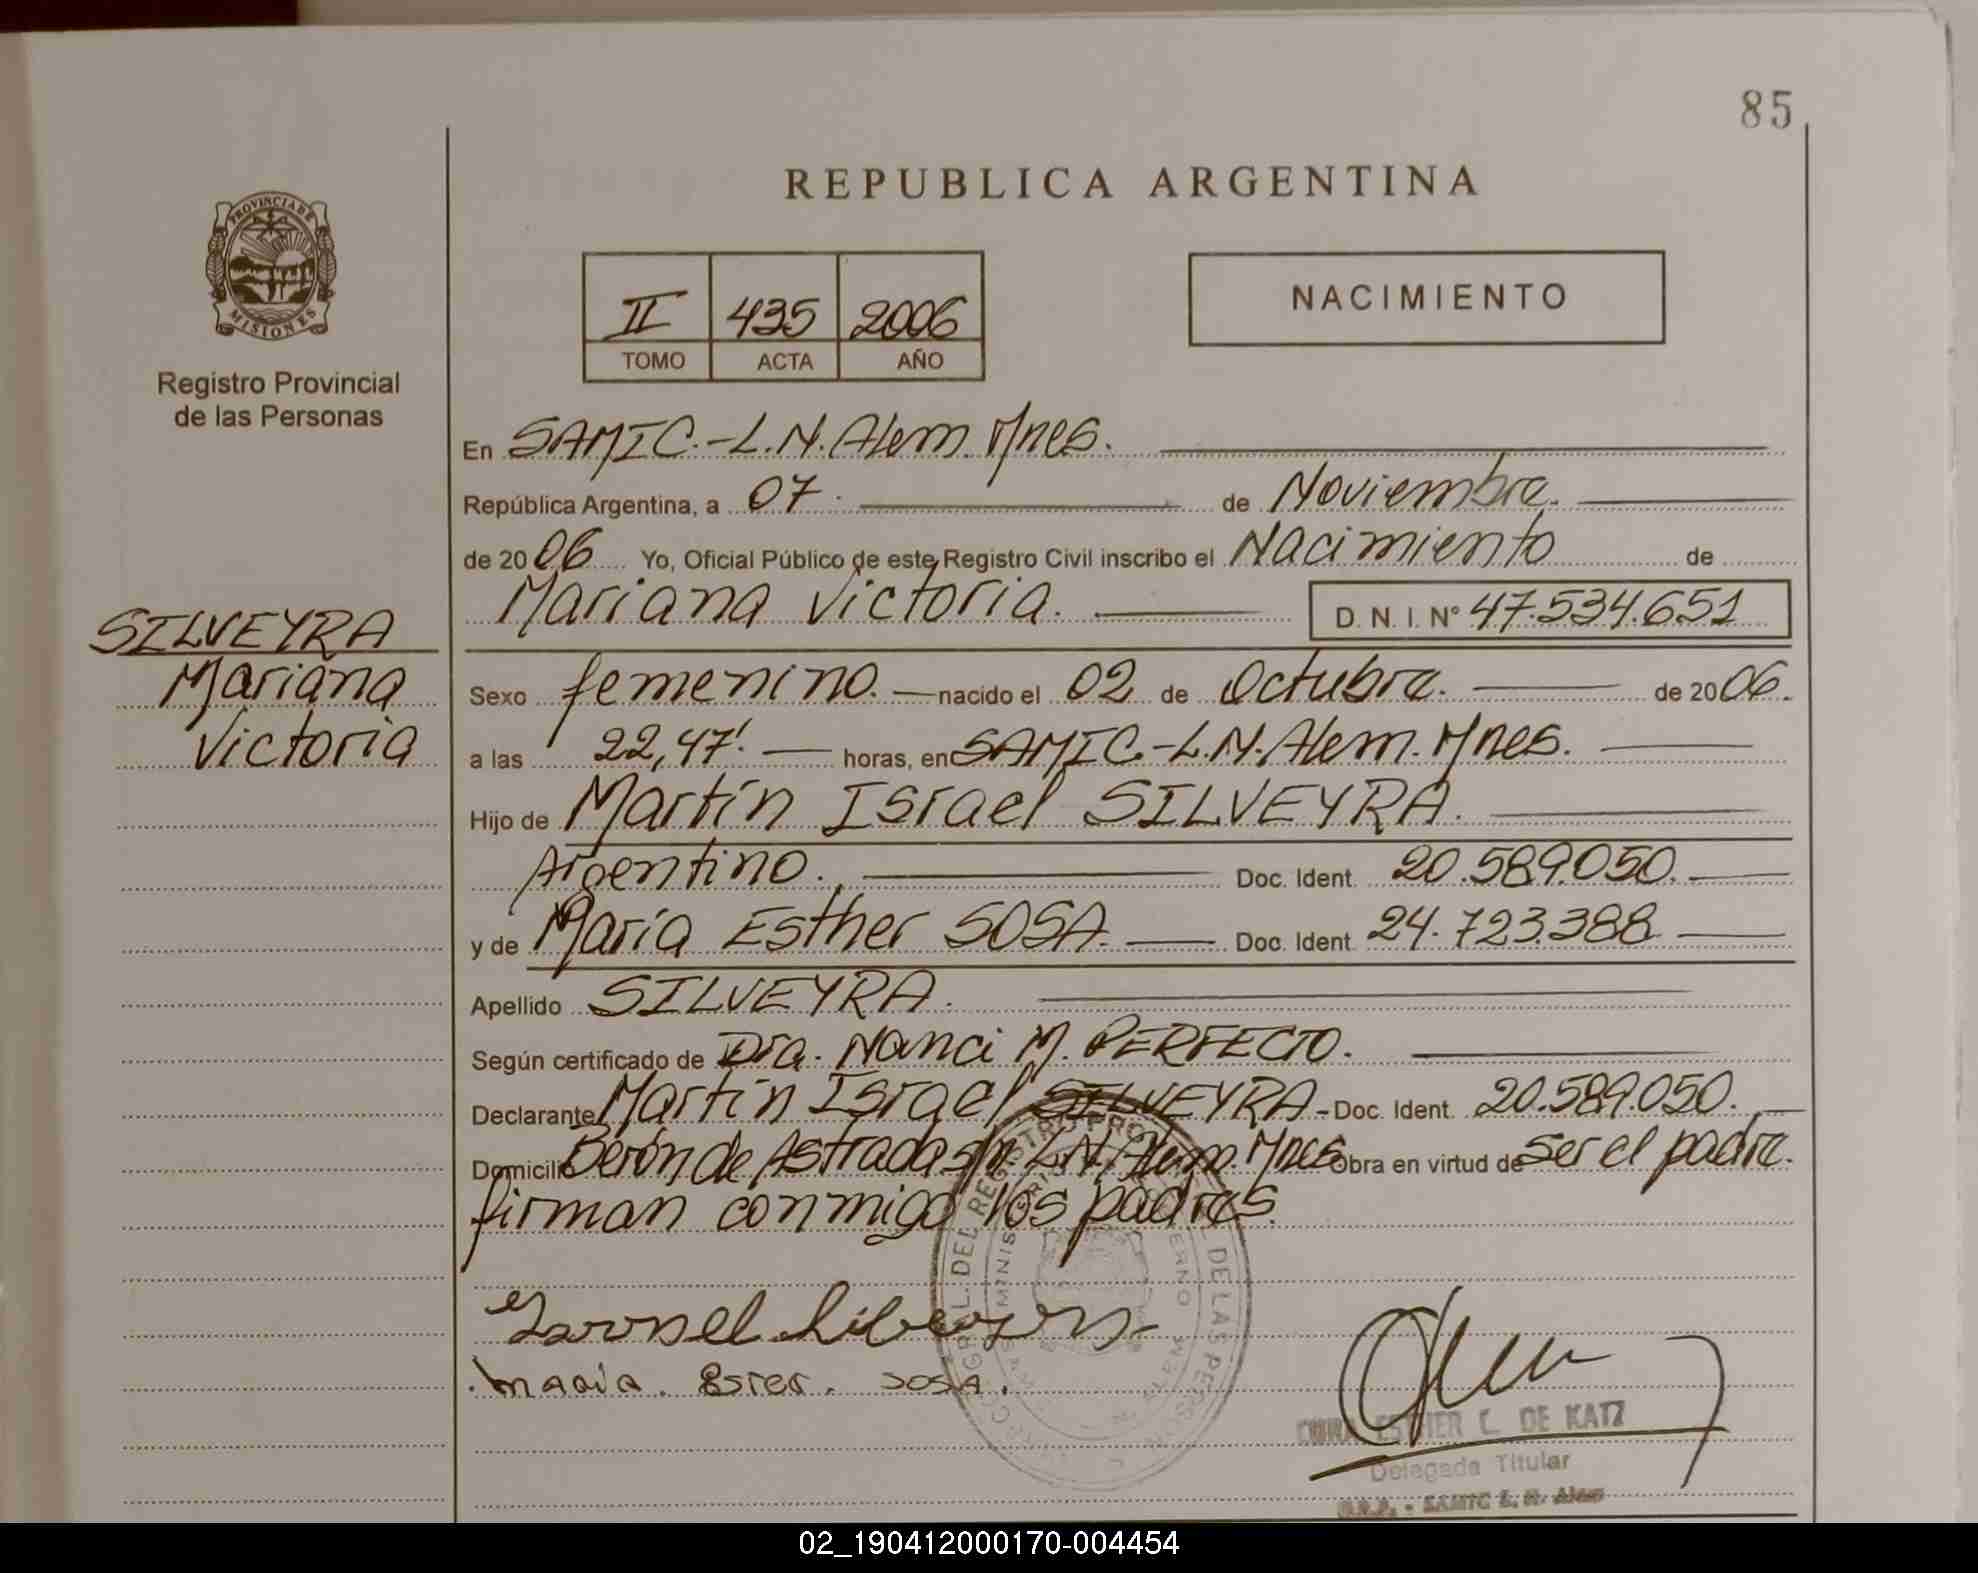 85
REPUBLICA ARGENTINA
PROVINCIA DE
MISIONES
Registro Provincial
de las Personas
II 435 2006
TOMO ACTA AÑO
NACIMIENTO
En SAMIC.-L.N.Alem. Mnes.
República Argentina, a 07. de Noviembre.
de 2006 Yo, Oficial Público de este Registro Civil inscribo el Nacimiento de
Mariana Victoria. D. N. I. N° 47.534.651
SILVEYRA
Mariana
Victoria
Sexo femenino. nacido el 02 de Octubre. de 2006.
a las 22,47'. horas, en SAMIC.-L.N.Alem. Mnes.
Hijo de Martín Israel SILVEYRA.
Argentino. Doc. Ident. 20.589.050.
y de María Esther SOSA. Doc. Ident. 24.723.388
Apellido SILVEYRA.
Según certificado de Dra. Nanci M. PERFECTO.
Declarante Martín Israel SILVEYRA - Doc. Ident. 20.589.050.
Domicilio Berón de Astrada s/n. L.N.Alem. Mnes Obra en virtud de ser el padre.
firman conmigo los padres.
maria. Ester. SOSA.
ESTHER C. DE KATZ
Delegada Titular
SAMIC L. N. Alem
02_190412000170-004454